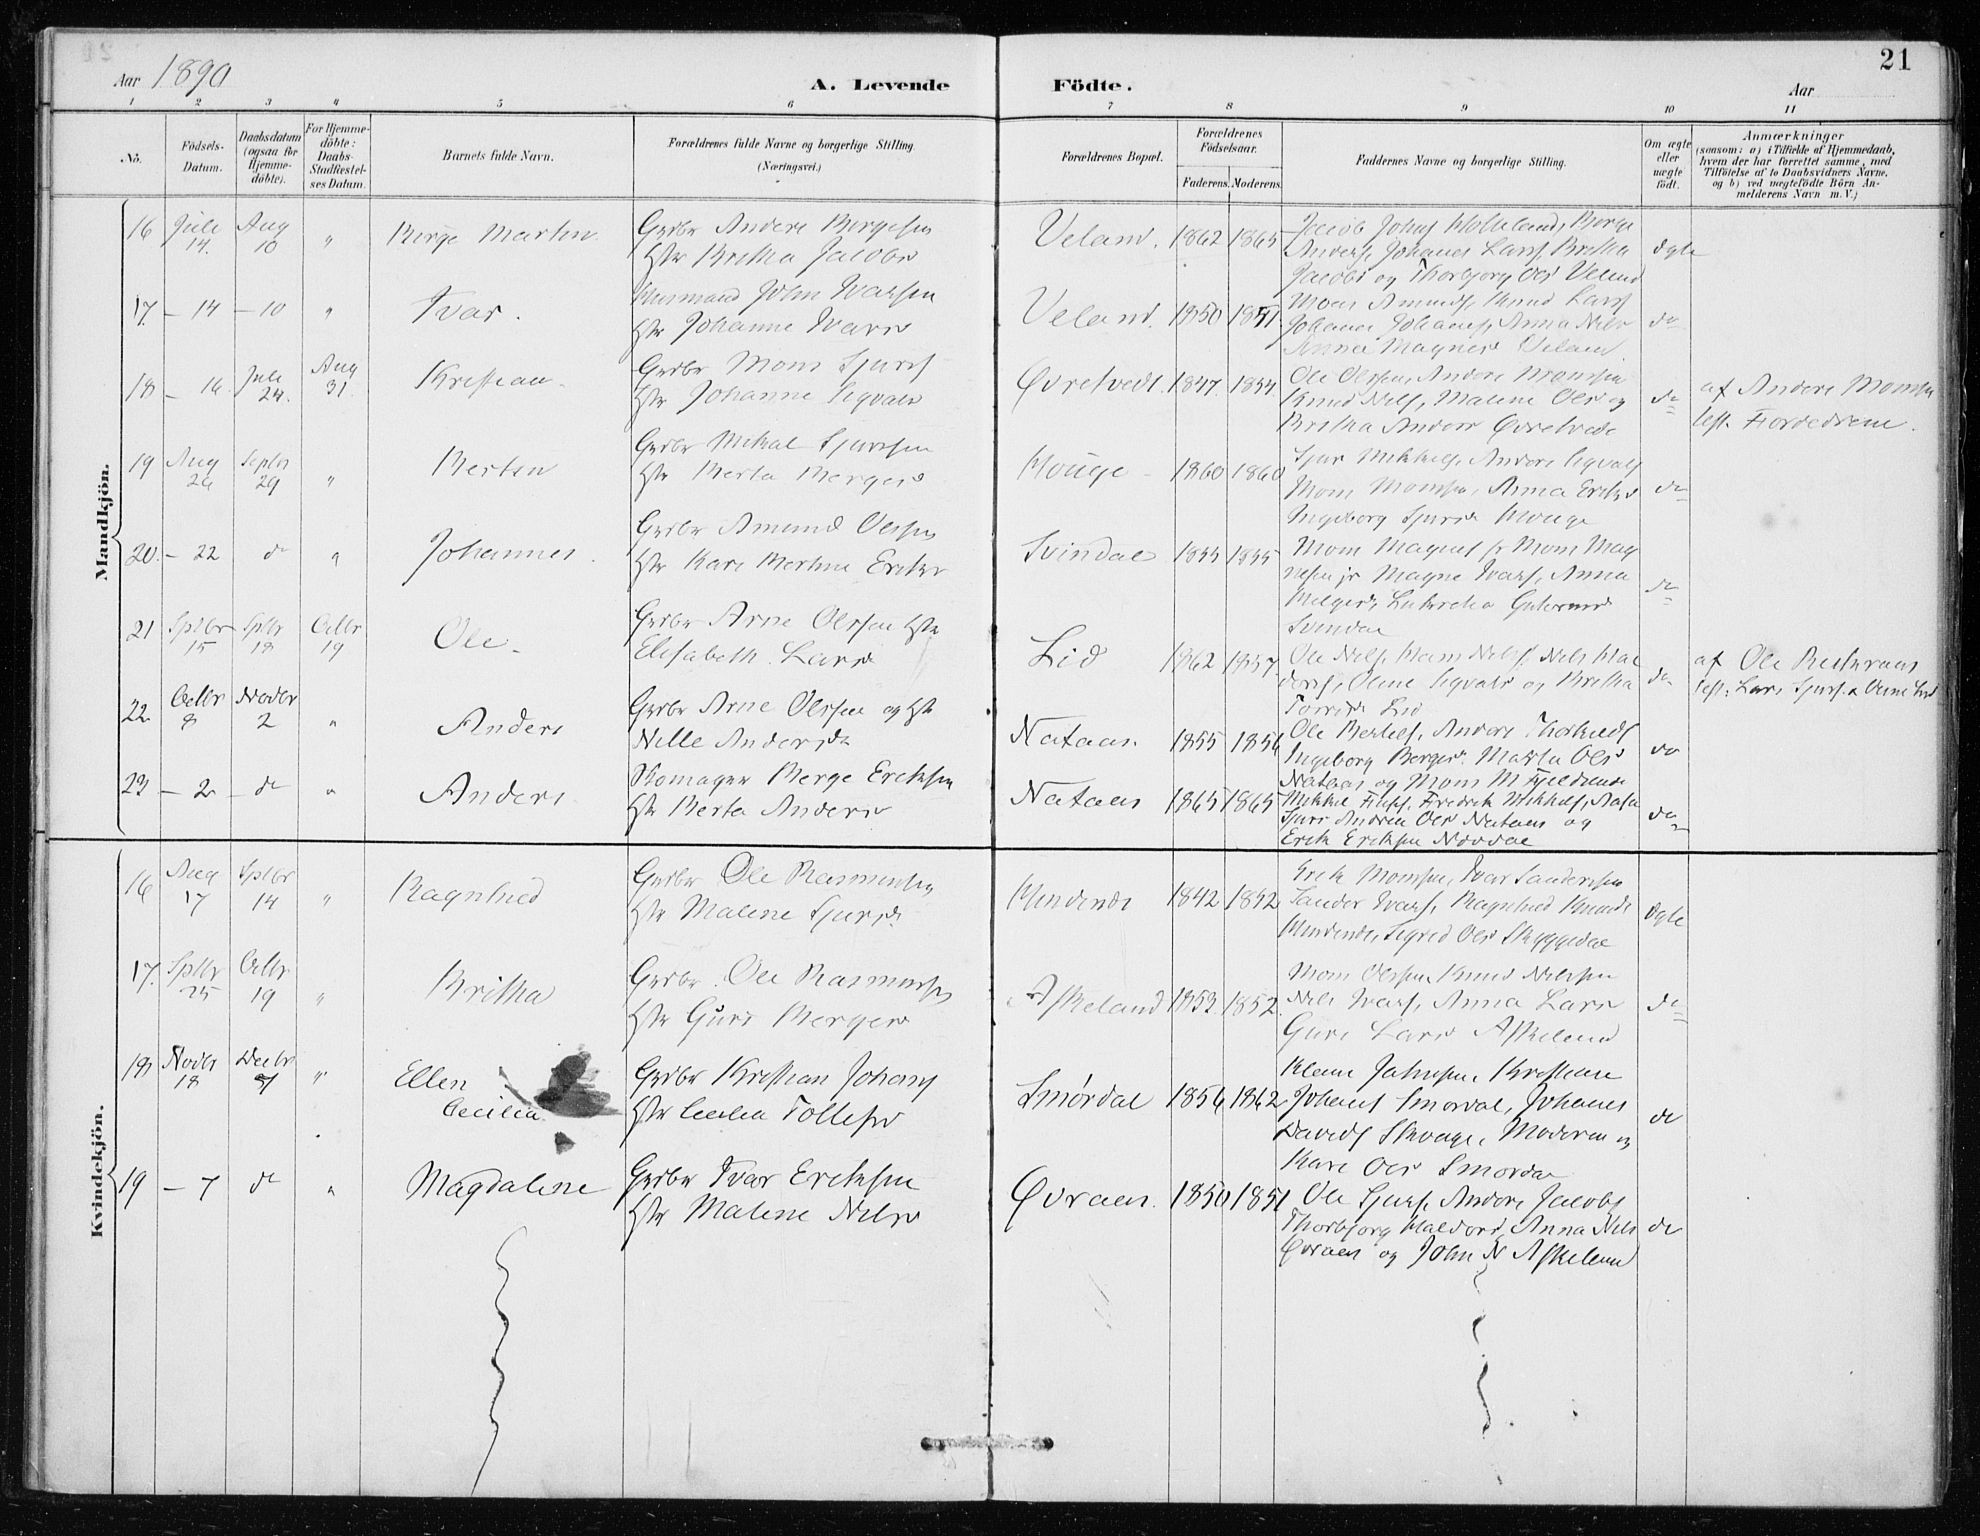 21
Aar 1890
A. Levende Födte.
Aar
1 2 3 4 5 6 7 8 9 10 11
No.
Födsels-Datum.
Daabsdatum (ogsaa for Hjemme-döbte).
For Hjemme-döbte: Daabs-Stadfæstel-ses Datum.
Barnets fulde Navn.
Forældrenes fulde Navne og borgerlige Stilling. (Næringsvei.)
Forældrenes Bopæl.
Forældrenes Födselsaar.
Faderens. Moderens.
Faddernes Navne og borgerlige Stilling.
Om ægte eller uægte födt.
Anmærkninger
(saasom: a) i Tilfælde af Hjemmedaab,
hvem der har forrettet samme, med
Tilföielse af to Daabsvidners Navne,
og b) ved uægtefödte Börn An-
melderens Navn m. V.)
Mandkjön.
16 Juli 14. Aug 10 " Berge Martin.
Grdbr Anders Bergesen
Hstr Britha Jacobs
Veland. 1862 1865
Anders, Johanes Lars, Britha
Jacobs og Thorbjørg Ols Veland
ægte
17. – 14 – 10 " Ivar.
Husmand John Ivarsen
Hstr Johanne Ivars
Veland. 1850 1851
Mons Amunds, Knud Lars
Johanes Johanes, Anna Nils
Anna Magnes Veland
do
18 – 16. Juli 24. Aug 31. Kristian.
Grdbr Mons Sjurs
Hstr Johanne Sigvals
Øvretvedt. 1847. 1854.
Ole Olsen, Anders Monsen
Knud Nils, Malene Ols og
Britha Anders Øvretvedt
do
af Anders Monsen
test.
19 Aug 26 Septbr 29 " Bertin
Grdbr Mikal Sjursen
Hstr Berta Berges
Houge – 1860 1860
Sjur Mikkels, Anders Sigvals
Mons Monsen, Anna Eriks
Ingeborg Sjurs Houge
do
20. – 22 do " Johannes.
Grdbr Amund Olsen
Hstr Kari Bertine Eriks
Svindal 1855 1855
Mons Magnes sr Mons Mag
nesen jr Magne Ivars, Anna
Svindal
do
21 Sptbr 15 Sptbr 18 Octbr 19 Ole.
Grdbr Arne Olsen Hstr
Elisabeth Lars
Lid 1862 1857
Ole Nils, Hans Nils, Nils Hal
dors, Oline Sigvals og Britha
Lid
do
af Ole
test: Lars Sjurs. & Oline Lid
22 Octbr 8 Novbr 2 " Anders
Grdbr Arne Olsen og Hstr
Nille Andersdr
Nataas. 1855 1856
Ole Bertels, Anders Thorkilds
Ingeborg Berges. Marta Ols
Nataas og Mons M Fjeldsende
do
23 – 2 – do " Anders
Skomager Berge Eriksen
Hstr Berta Anders
Nataas 1865 1865
Fredrik Mikkels,
Sjurs Andrea Ols Nataas og
Erik Eriksen
do
Kvindekjön.
16 Aug 17 Sptbr 14 " Ragnhild
Grdbr Ole Rasmusen
Hstr Malene Sjursdr.
Hindenes 1842 1842
Erik Monsen, Ivar Sandersen
Sander Ivars, Ragnhild Knuds
Hindenes, Sigrid Ols Skyggedal
ægte
17. Sptbr 25 Octbr 19 " Britha
Grdbr. Ole Rasmusen
Hstr Guri Berges
Askeland 1853. 1852.
Mons Olsen, Knud Nilssen
Nils Ivars, Anna Lars
Guri Lars Askeland
do
18 Novbr 18 Decbr " Ellen
Cecilia
Grdbr Kristian Johans
Hstr Cecilia Tolles
Smørdal 1856 1862
Johans Smørdal, Johanes
Davids Skauge, Moderen og
Kari Ols Smørdal
do
19 – 7 do " Magdalene
Grdbr Ivar Eriksen
Hstr Malene Nils
Øvraas. 1850 1851
Ole Sjurs, Anders Jacobs
Thorbjørg Haldors, Anna Nils
Øvraas og John N Askeland
do